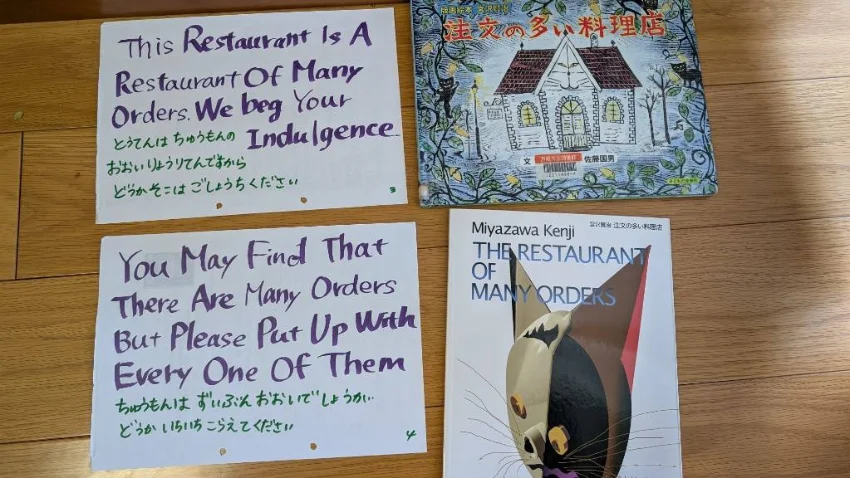 This Restaurant Is A
Restaurant Of Many
Orders. We beg Your
Indulgence
とうてんは ちゅうもんの
おおい りょうりてんですから
どうか そこは ごしょうちください
3
You May Find That
There Are Many Orders
But Please Put Up With
Every One Of Them
ちゅうもんは ずいぶん おおいでしょうが
どうか いちいち こらえてください
4
版画絵本 宮沢賢治
注文の多い料理店
文
佐藤国男
Miyazawa Kenji
宮沢賢治・注文の多い料理店
THE RESTAURANT
OF
MANY ORDERS